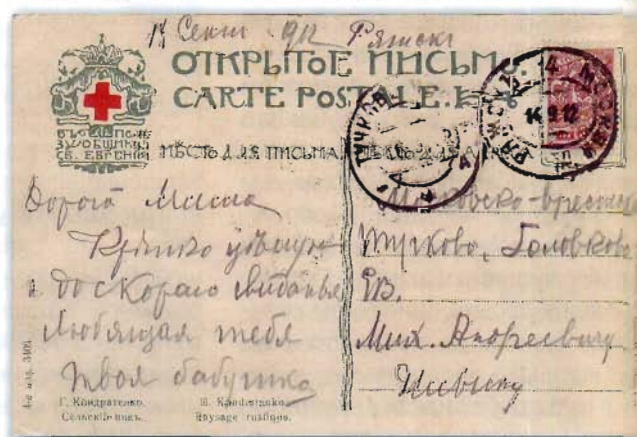 14 Сент 1912 Ряжск
ОТКРЫТОЕ ПИСЬМО.
CARTE POSTALE.
ВЪ ПОЛЬЗУ ОБЩИНЫ
СВ. ЕВГЕНІИ
МѢСТО ДЛЯ ПИСЬМА.
РЯЖСКЪ
14.9.12
Дорогой Миша
Крѣпко цѣлую
и до скораго свиданья
Любящая тебя
твоя бабушка
Московско-Брестск
Тучково, Головково
ЕВ.
Мих. Андреевичу
4-е изд. 3409
Г. Кондратенко.
Сельскій видъ.
G. Kondratenko.
Paysage rustique.